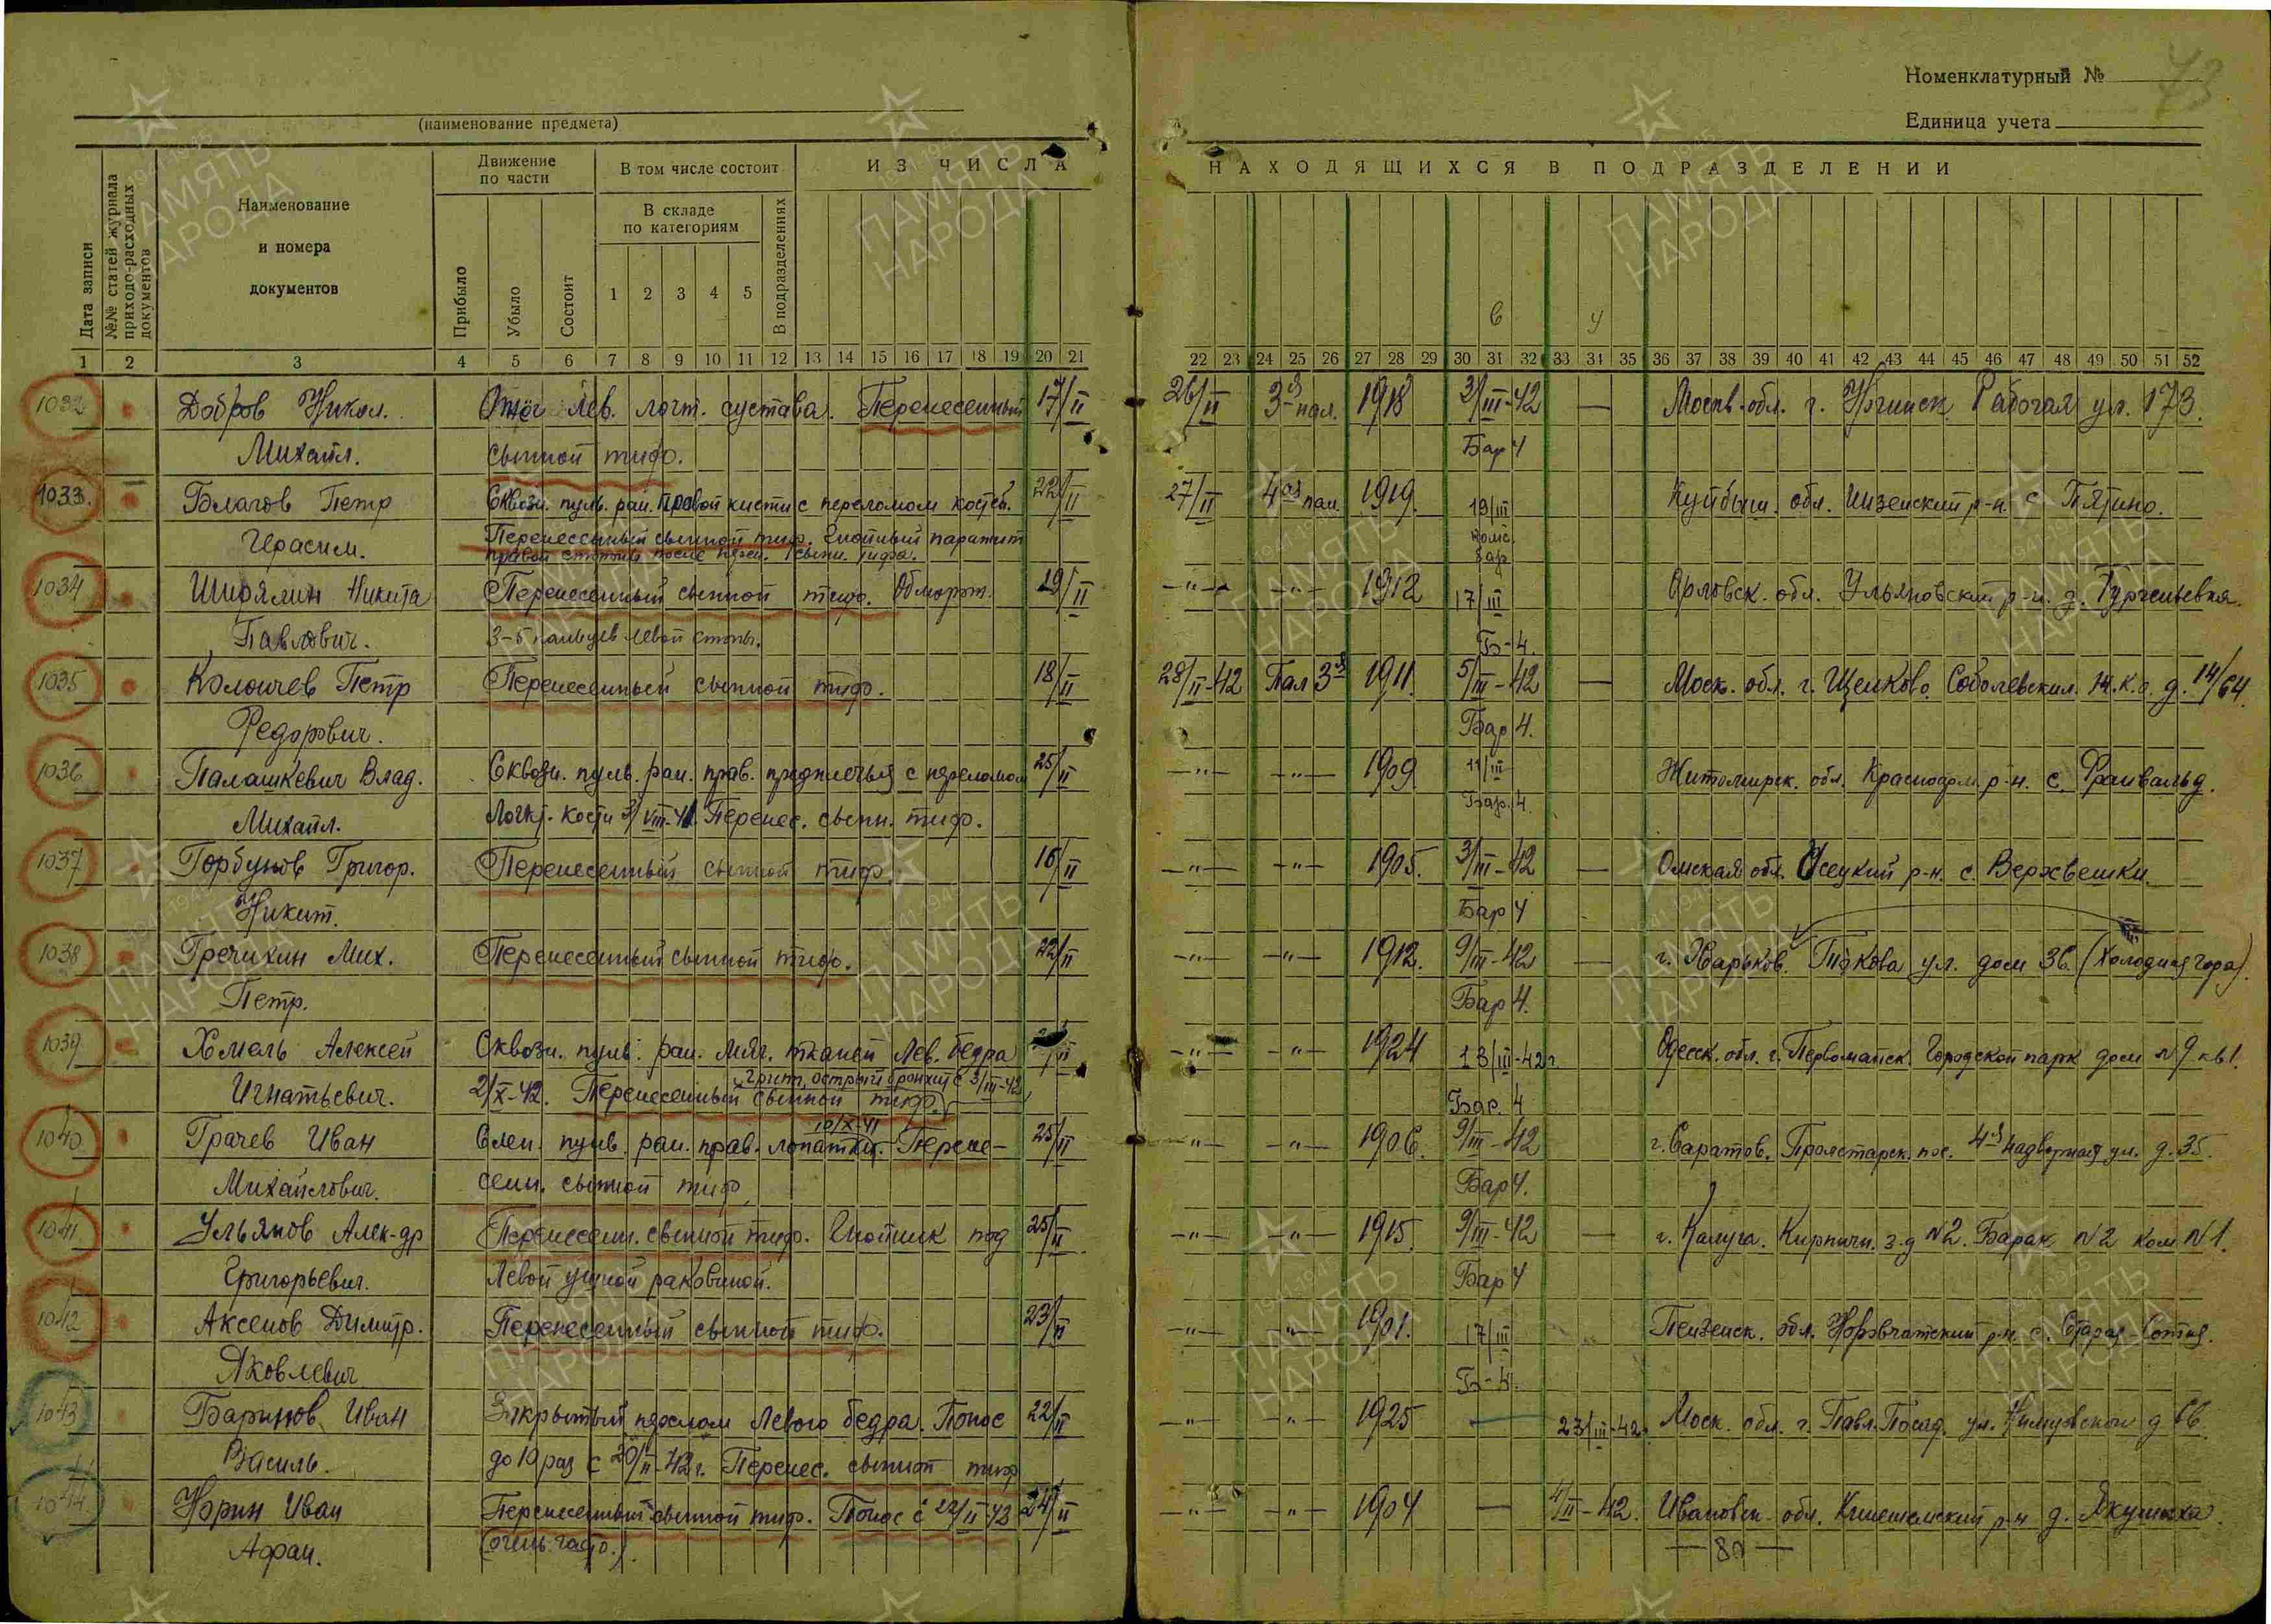 Номенклатурный №
73
Единица учета
(наименование предмета)
Дата записи
№№ статей журнала приходо-расходных документов
Наименование и номера документов
Движение по части
Прибыло
Убыло
Состоит
В том числе состоит
В складе по категориям
1 2 3 4 5
В подразделениях
ИЗ ЧИСЛА НАХОДЯЩИХСЯ В ПОДРАЗДЕЛЕНИИ
в у
1 2 3 4 5 6 7 8 9 10 11 12 13 14 15 16 17 18 19 20 21 22 23 24 25 26 27 28 29 30 31 32 33 34 35 36 37 38 39 40 41 42 43 44 45 46 47 48 49 50 51 52
1032 Добров Никол. лев. локт. сустава. Перенесенный 17/II 26/II 3-я пал. 1918 3/III-42 — Моск. обл. г. Рабочая ул. 173.
Михайл. сыпной тиф. Бар 4
1033. Благов Петр Сквозн. пуль. ран. правой кисти с переломом костей. 22/II 27/II 4ая пал. 1919. 19/III Куйбыш. обл. р-н. с Пятино.
Герасим. Перенесенный сыпной тиф. Гнойный паратит Комс. Бар
правой стороны после перен. сыпн. тифа.
1034 Ширялин Никита Перенесенный сыпной тиф. Обморож. 29/II —"— —"— 1912 17/III Орловск. обл. Ульяновский р-н. д.
Павлович. 3-5 пальцев левой стопы. Б-4.
1035 Петр Перенесенный сыпной тиф. 18/II 28/II-42 Пал 3я 1911. 5/III-42 — Моск. обл. г. Щелково. д. 14/64.
Федорович. Бар 4.
1036 Палашкевич Влад. Сквозн. пуль. ран. прав. предплечья с переломом 25/II —"— —"— 1909 11/III Житомирск. обл. Красноарм. р-н. с.
Михайл. Локт. кости 3/VIII-41. Перенес. сыпн. тиф. Бар. 4
1037 Горбунов Григор. Перенесенный сыпной тиф. 16/II —"— —"— 1905. 3/III-42 — Омская обл. р-н. с.
Никит. Бар 4
1038 Гречихин Мих. Перенесенный сыпной тиф. 22/II —"— —"— 1912. 9/III-42 — г. Харьков. ул. дом 36. (Холодная гора).
Петр. Бар 4.
1039 Хмель Алексей Сквозн. пуль. ран. мяг. тканей лев. бедра —"— —"— 1924 13/III-42г. Одесск. обл. г. Первомайск. Городской парк дом №9 кв 1.
Грипп, острый бронхит с 3/III-42
Игнатьевич. 2/X-42. Перенесенный сыпной тиф. Бар. 4
10/X-41
1040 Грачев Иван Слеп. пуль. ран. прав. лопатки. Перене- 25/II —"— —"— 1906. 9/III-42 г. Саратов. Пролетарск. пос. 4я ул. д. 35.
Михайлович. сенн. сыпной тиф. Бар 4.
1041 Ульянов Алек-др Перенесенн. сыпной тиф. Гнойник под 25/II —"— —"— 1915. 9/III-42 — г. Калуга. Кирпичн. з-д №2. Барак №2 ком №1.
Григорьевич. левой ушной раковиной. Бар 4
1042 Аксенов Димитр. Перенесенный сыпной тиф. 23/II —"— —"— 1901. 17/III Пензенск. обл. Наровчатский р-н. с. Старая
Яковлевич Б-4.
1043 Баринов Иван Закрытый перелом левого бедра. Понос 22/II —"— —"— 1925 — 23/III-42. Моск. обл. г. Павл. Посад. ул. д
Василь. до 19 раз с 20/II-42г. Перенес. сыпной тиф
1044 Норин Иван Перенесенный сыпной тиф. Понос с 22/II 42 24/II —"— —"— 1904 — 4/II-42. Ивановск. обл. Кинешемский р-н д. Якушиха.
Афан. (очень часто.)